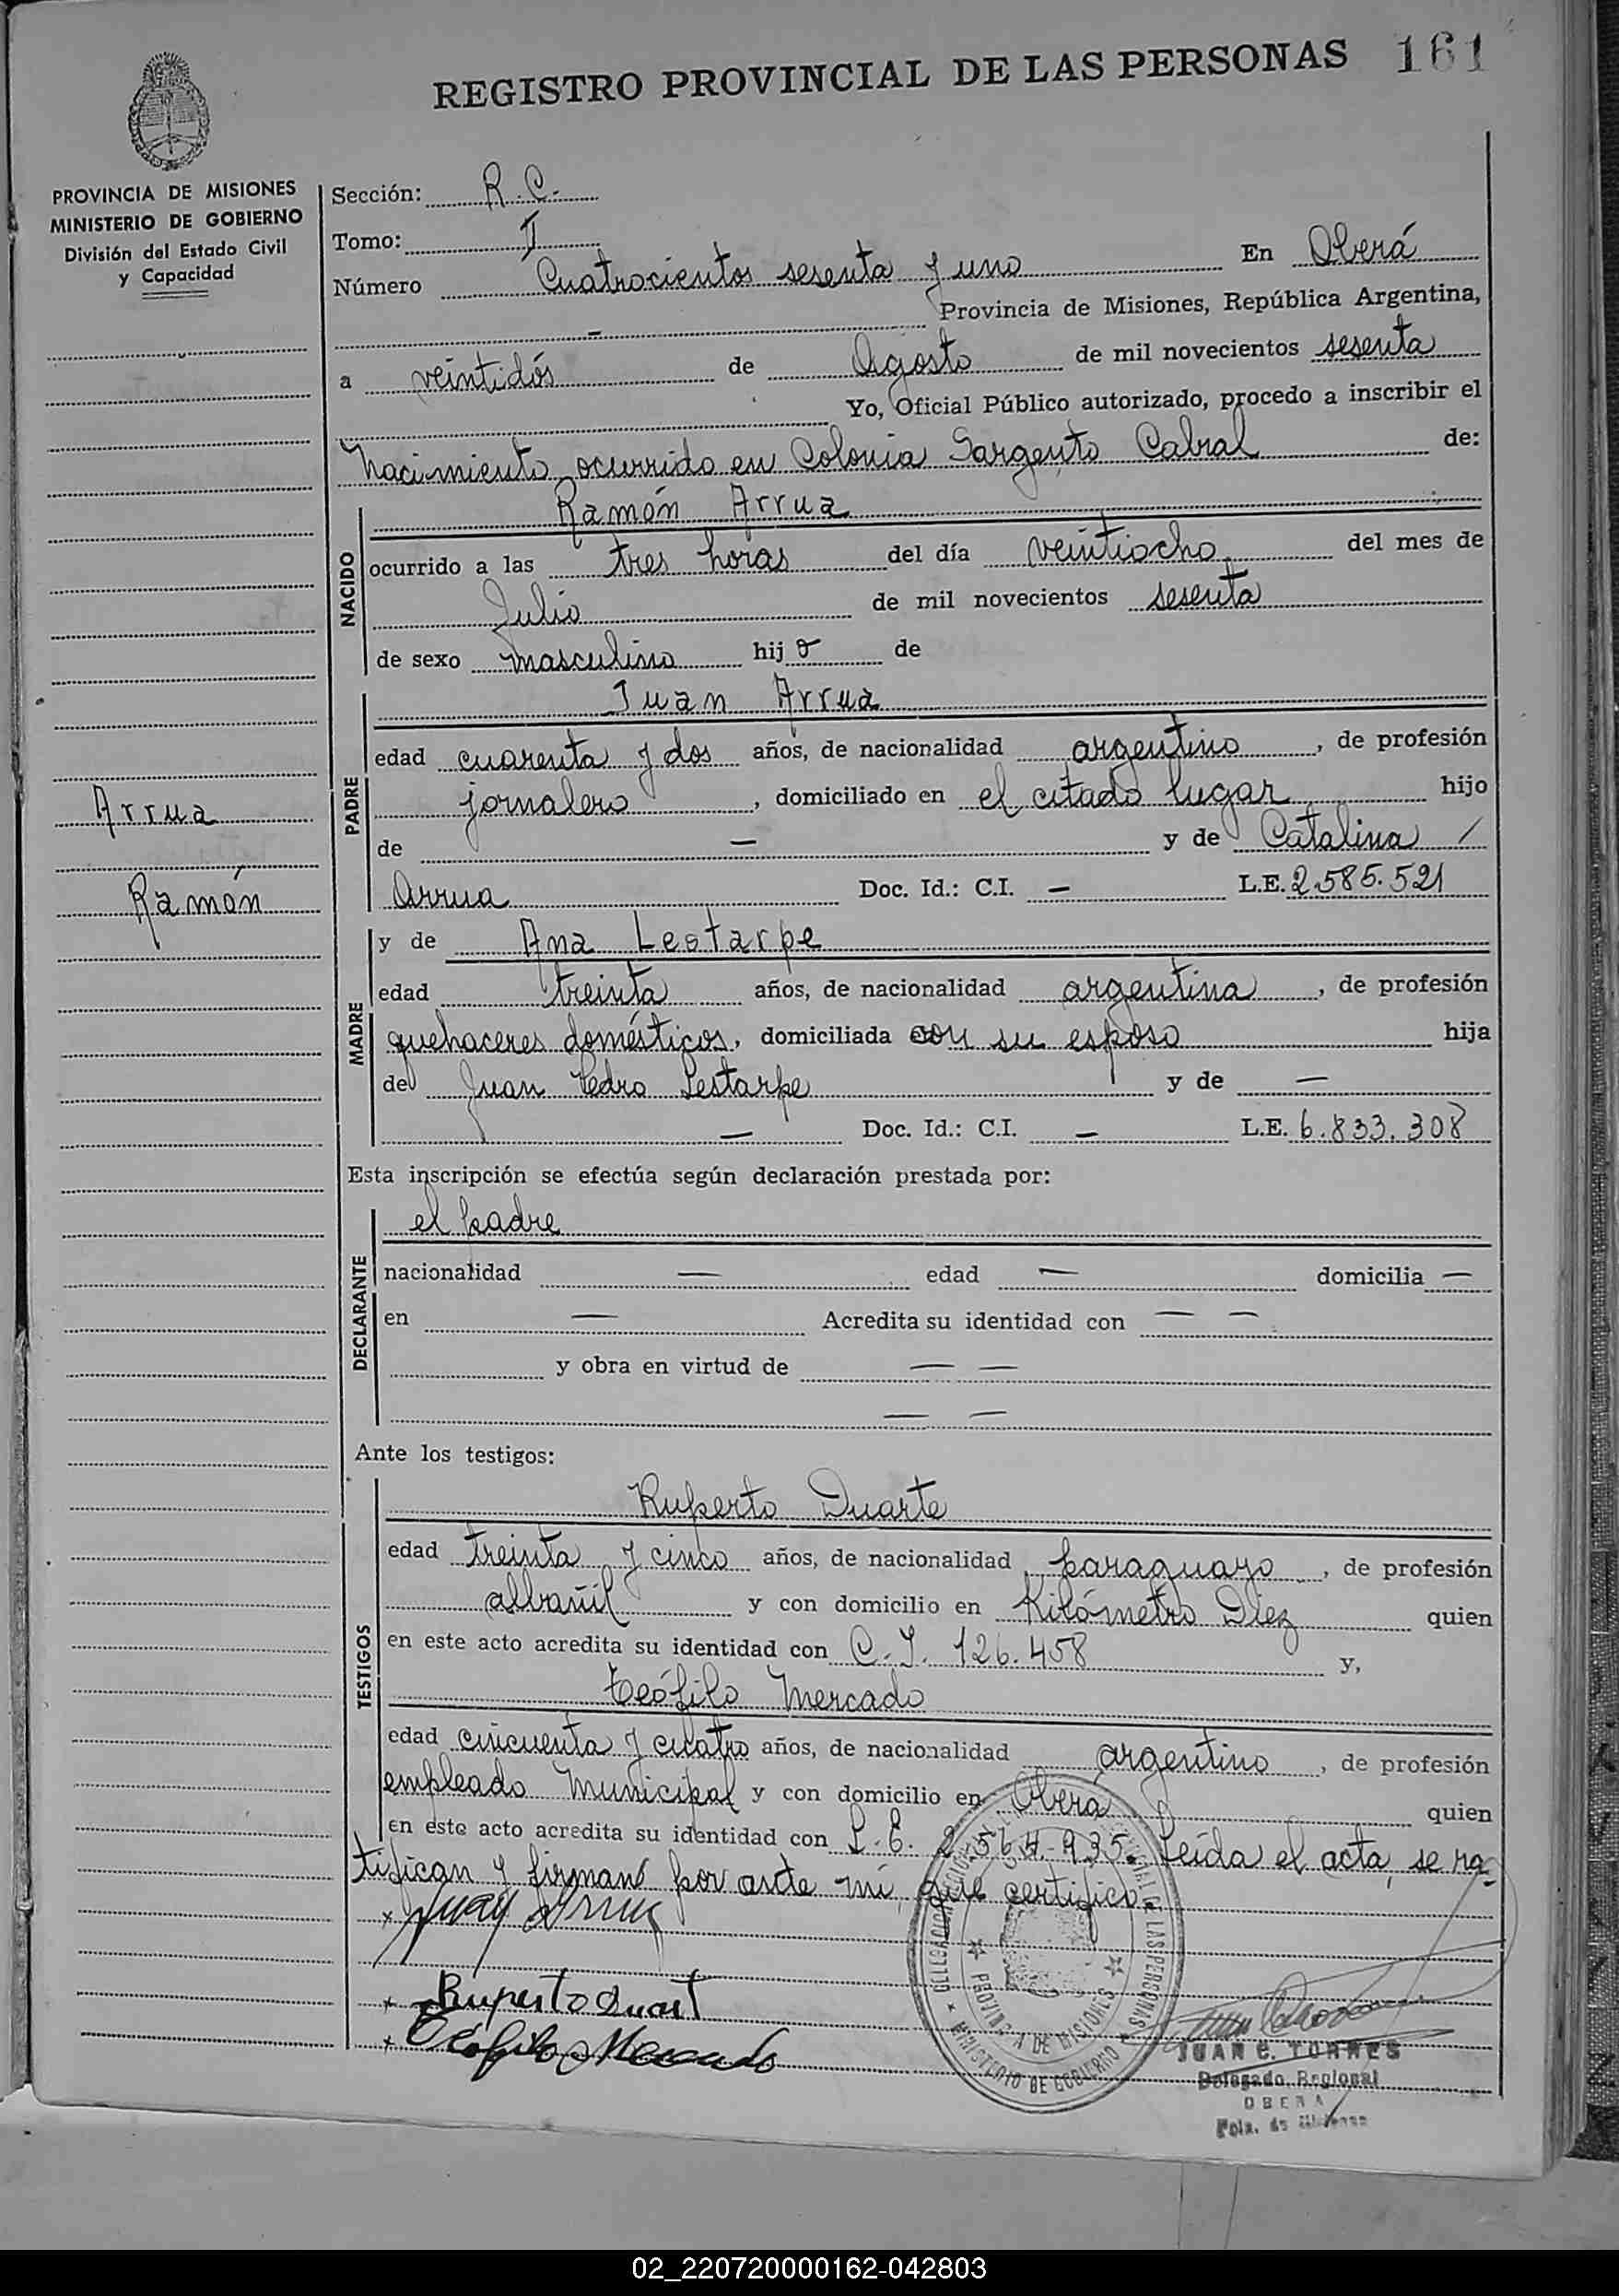 REGISTRO PROVINCIAL DE LAS PERSONAS 161
PROVINCIA DE MISIONES
MINISTERIO DE GOBIERNO
División del Estado Civil
y Capacidad
Arrua
Ramón
Sección: R.C.
Tomo: I
Número Cuatrocientos sesenta y uno En Oberá
— Provincia de Misiones, República Argentina,
a veintidós de Agosto de mil novecientos sesenta
Yo, Oficial Público autorizado, procedo a inscribir el
nacimiento ocurrido en Colonia Sargento Cabral de:
NACIDO
Ramón Arrua
ocurrido a las tres horas del día veintiocho del mes de
Julio de mil novecientos sesenta
de sexo masculino hijo de
PADRE
Juan Arrua
edad cuarenta y dos años, de nacionalidad argentino, de profesión
jornalero, domiciliado en el citado lugar hijo
de — y de Catalina /
Arrua Doc. Id.: C.I. — L.E. 2.585.521
MADRE
y de Ana Lestarpe
edad treinta años, de nacionalidad argentina, de profesión
quehaceres domésticos, domiciliada con su esposo hija
de Juan Pedro Lestarpe y de —
— Doc. Id.: C.I. — L.E. 6.833.308
Esta inscripción se efectúa según declaración prestada por:
DECLARANTE
el padre
nacionalidad — edad — domicilia —
en — Acredita su identidad con — —
y obra en virtud de — —
— —
Ante los testigos:
TESTIGOS
Ruperto Duarte
edad treinta y cinco años, de nacionalidad paraguayo, de profesión
albañil y con domicilio en Kilómetro Diez quien
en este acto acredita su identidad con C.I. 126.458 y,
Teófilo Mercado
edad cincuenta y cuatro años, de nacionalidad argentino, de profesión
empleado Municipal y con domicilio en Oberá quien
en este acto acredita su identidad con L.E. 2.564.935. Leída el acta, se ra-
tifican y firman por ante mí que certifico.
x Juan Arrua
x Ruperto Duart
x Teofilo Mercado
LAS PERSONAS
PROVINCIA DE MISIONES
MINISTERIO DE GOBIERNO
JUAN C. TORRES
Delegado Regional
OBERA
Pcia. de Misiones
02_220720000162-042803